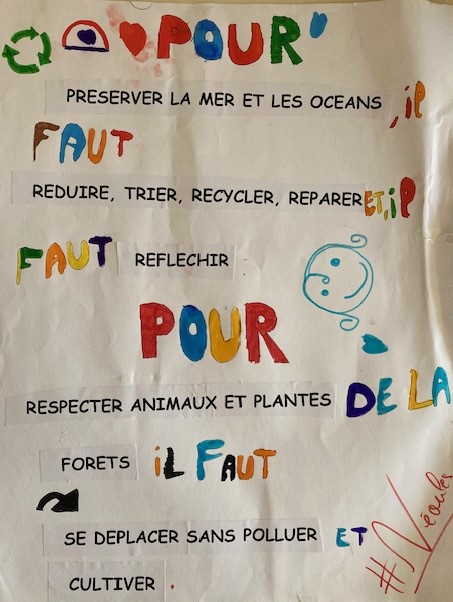 POUR
PRESERVER LA MER ET LES OCEANS, iP
FAUT
REDUIRE, TRIER, RECYCLER, REPARER ET, iP
FAUT REFLECHIR
POUR
RESPECTER ANIMAUX ET PLANTES DE LA
FORETS iL FAUT
SE DEPLACER SANS POLLUER ET
CULTIVER.
#Néoules